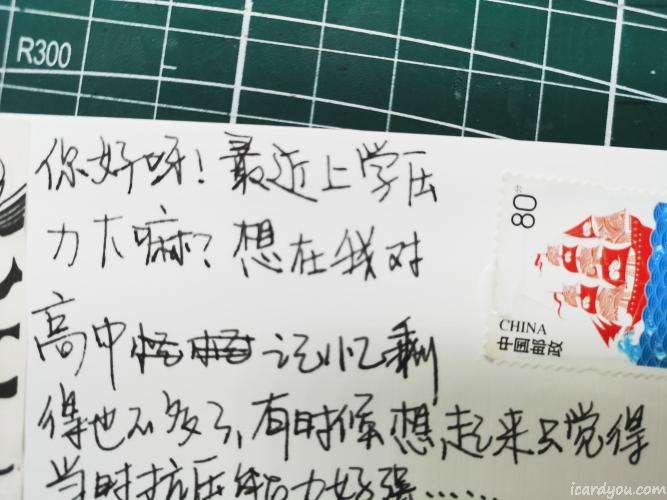 R300
你好呀！最近上学压
力大嘛？想在我对
高中记忆剩
得也不多了，有时候想起来只觉得
当时抗压能力好强……
80分
CHINA
中国邮政
icardyou.com